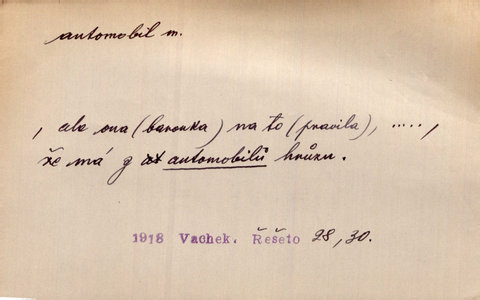 automobil m.
, ale ona (baronka) na to (pravila), .....,
že má z automobilů hrůzu.
1918 Vachek. Řešeto 28, 30.